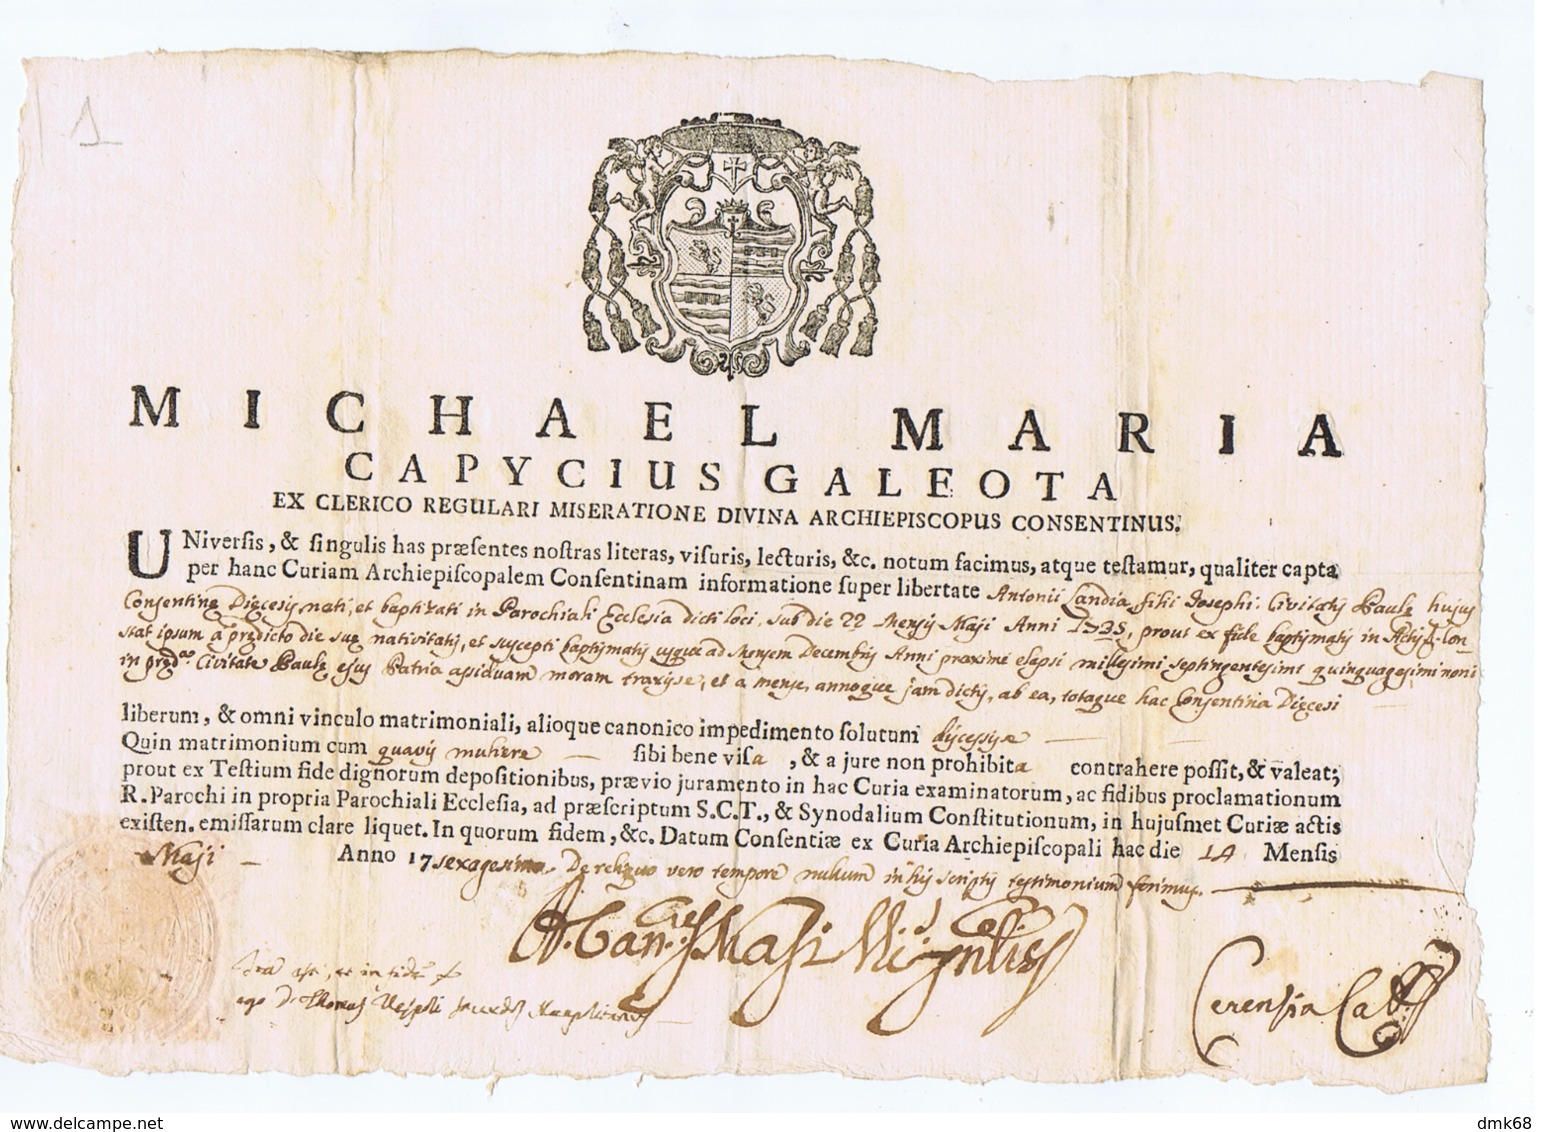 1
MICHAEL MARIA
CAPYCIUS GALEOTA
EX CLERICO REGULARI MISERATIONE DIVINA ARCHIEPISCOPUS CONSENTINUS.
UNiversis, & singulis has præsentes nostras literas, visuris, lecturis, &c. notum facimus, atque testamur, qualiter capta
per hanc Curiam Archiepiscopalem Consentinam informatione super libertate Antonii Landia filii Josephi Civitatis Paulæ hujus
Consentinę Dięcesis nati, et baptizati in Parochiali Ecclesia dicti loci, sub die 22 Mensis Maji Anni 1735, prout ex fide baptismatis in Actis Con
stat ipsum a prędicto die suę nativitatis, et suscepti baptismatis usque ad Mensem Decembris Anni proxime elapsi millesimi septingentesimi quinquagesimi noni
in pręd.ᵃ Civitate Paulę ejus Patria assiduam moram traxisse, et a mense, annoque jam dictis, ab ea, totaque hac Consentina Dięcesi
liberum, & omni vinculo matrimoniali, alioque canonico impedimento solutum discessisse
Quin matrimonium cum quavis muliere sibi bene visa, & a jure non prohibita contrahere possit, & valeat;
prout ex Testium fide dignorum depositionibus, prævio juramento in hac Curia examinatorum, ac fidibus proclamationum
R. Parochi in propria Parochiali Ecclesia, ad præscriptum S.C.T., & Synodalium Constitutionum, in hujusmet Curiæ actis
existen. emissarum clare liquet. In quorum fidem, &c. Datum Consentiæ ex Curia Archiepiscopali hac die 14 Mensis
Maji Anno 17sexagesimo. De reliquo vero tempore nullum in his scriptis testimonium ferimus.
Can.
ego D. Thomas
dmk68